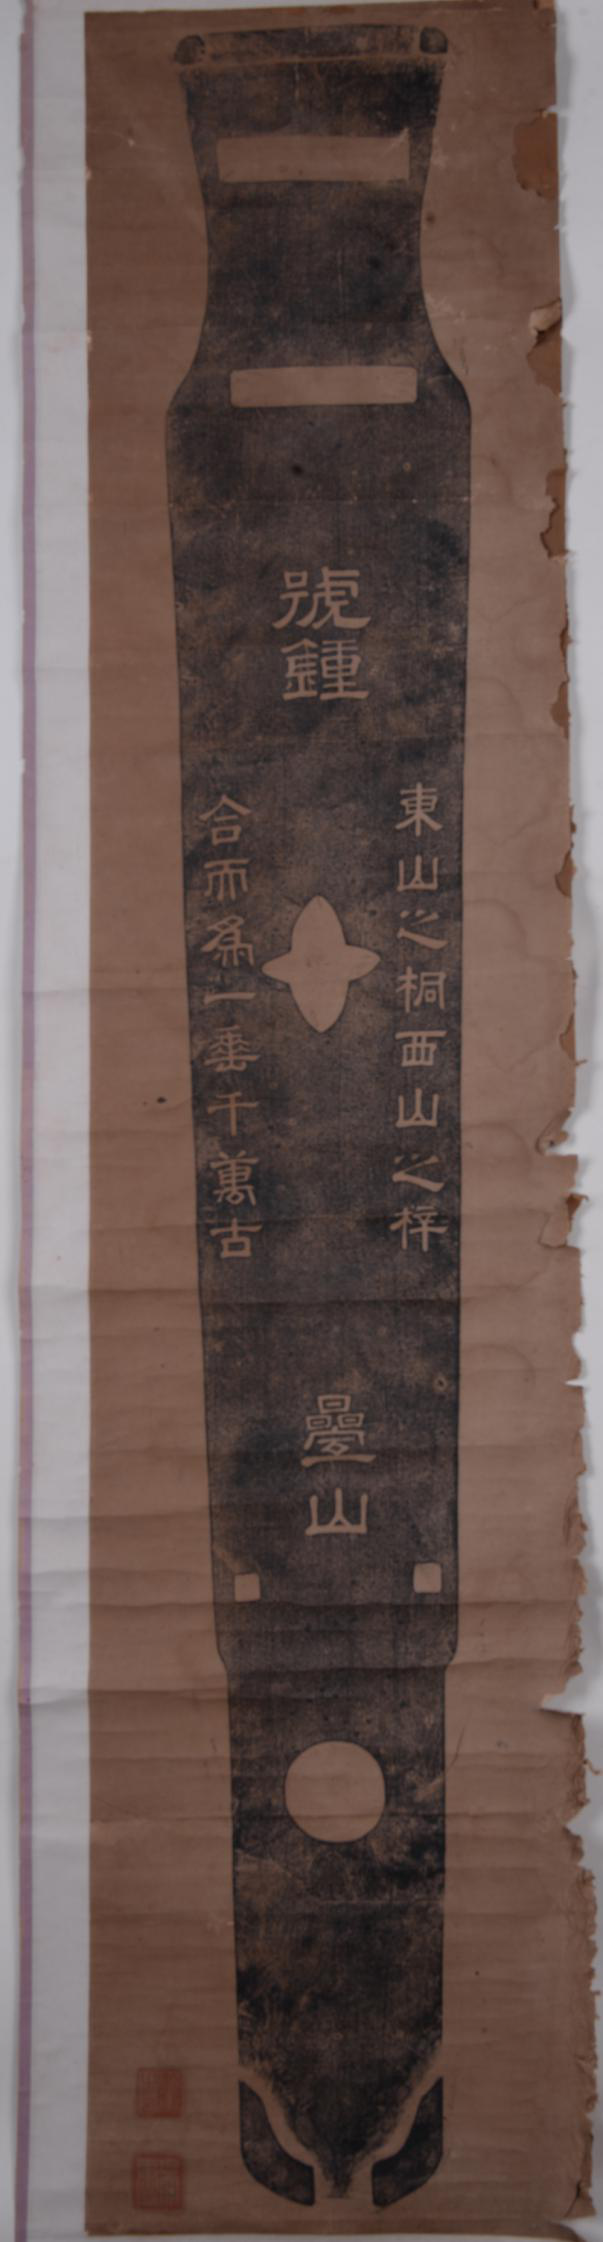 號鍾
東山之桐西山之梓
合而爲一垂千萬古
疊山